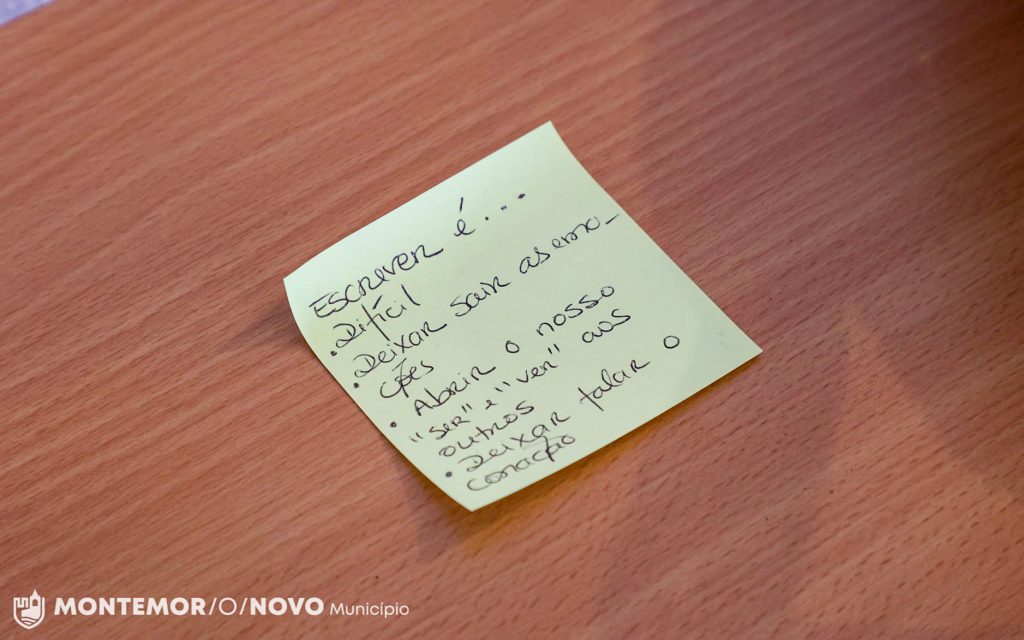 Escrever é...
• Difícil
• Deixar sair as emo-
ções
• Abrir o nosso
"ser" e "ver" aos
outros
• Deixar falar o
coração
MONTEMOR/O/NOVO Município